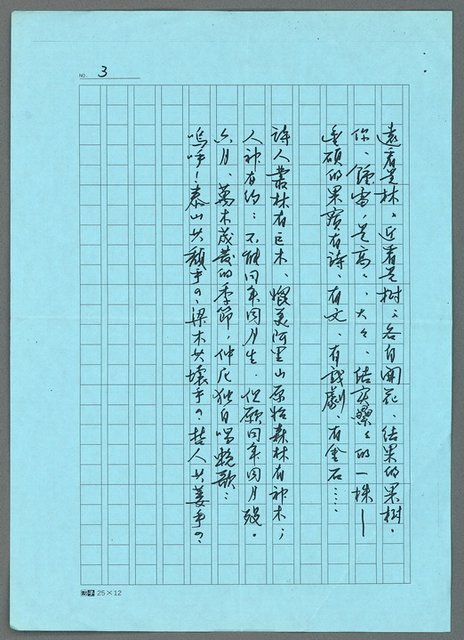 NO. 3
遠看是林，近看是樹；各自開花、結果的果樹，
你、鍾雷，是高高、大大、結實纍纍的一株——
垂碩的果實有詩、有文、有戲劇！有金石……
詩人叢林有巨木、恨美阿里山原始森林有神木；
人神有約：不能同年同月生，但願同年同月歿。
六月、萬木茂發的季節，仲尼獨自唱輓歌：
嗚呼！泰山其頹乎？梁木其壞乎？哲人其萎乎？
25×12